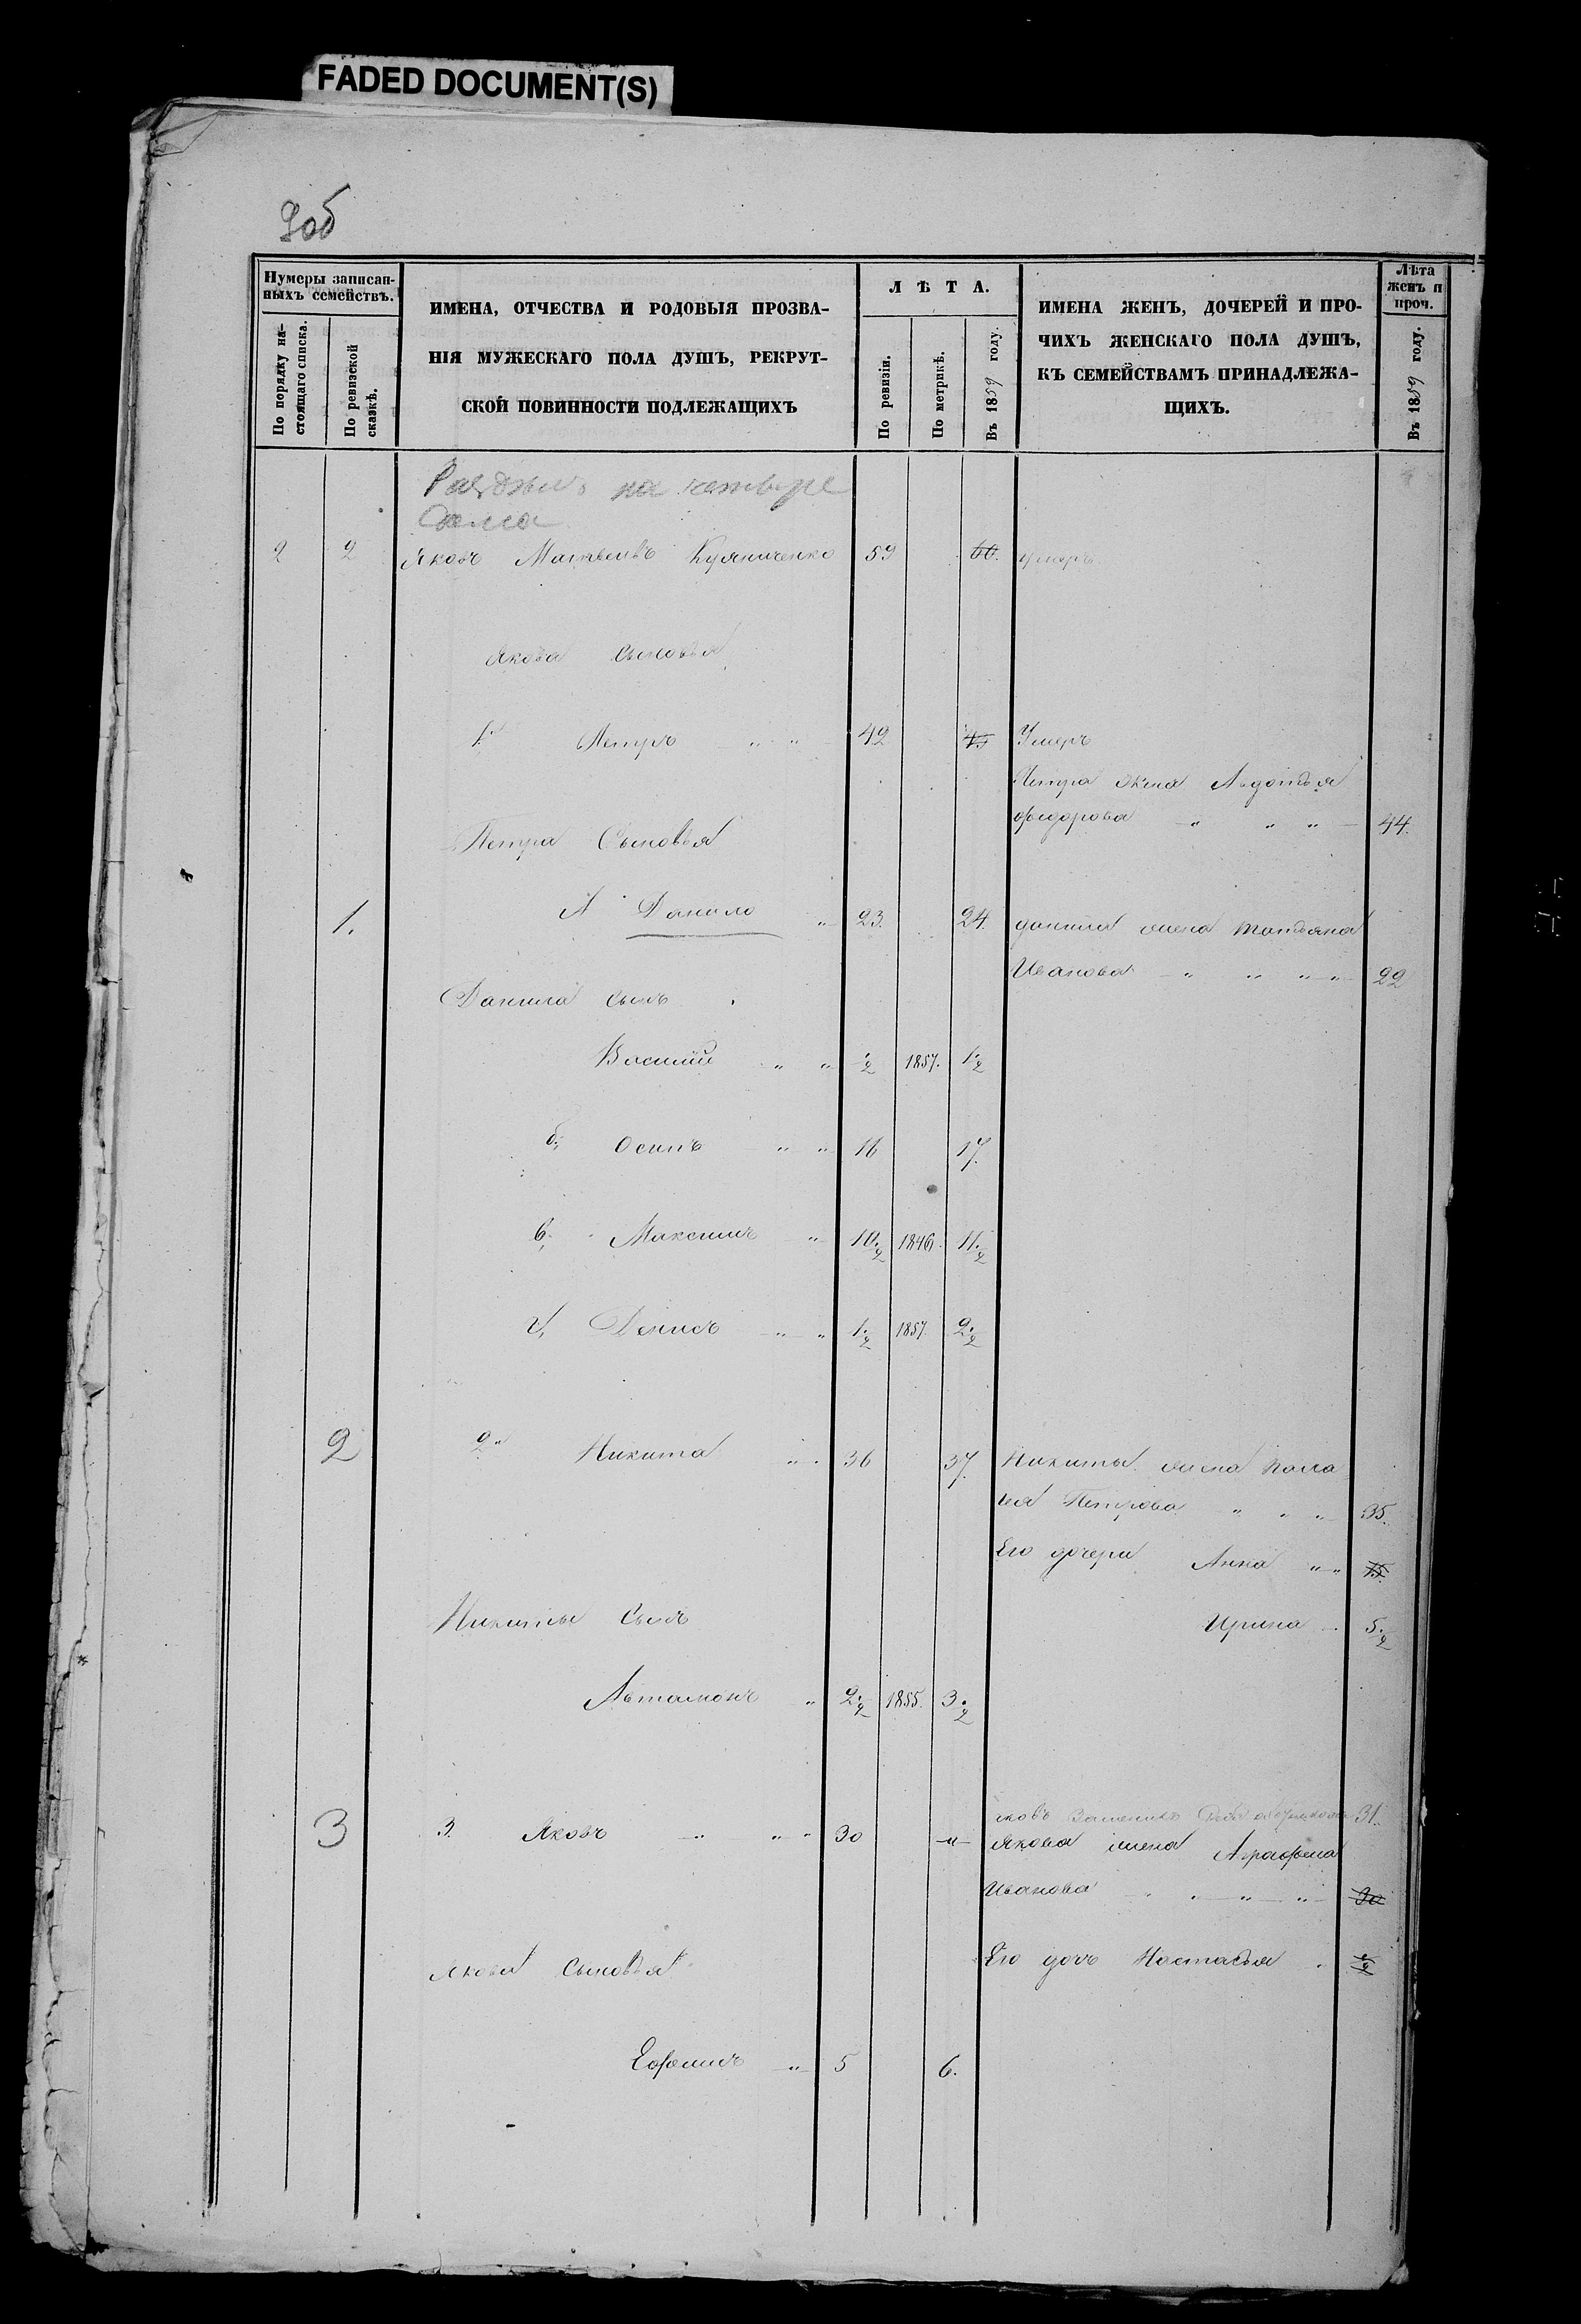 FADED DOCUMENT(S)
Нумеры записан-
ныхъ семействъ.
По порядку на-
стоящаго списка.
По ревизской
сказкѣ.
ИМЕНА, ОТЧЕСТВА И РОДОВЫЯ ПРОЗВА-
НІЯ МУЖЕСКАГО ПОЛА ДУШЪ, РЕКРУТ-
СКОЙ ПОВИННОСТИ ПОДЛЕЖАЩИХЪ
Л Ѣ Т А.
По ревизіи.
По метрикѣ.
Въ 1859 году.
ИМЕНА ЖЕНЪ, ДОЧЕРЕЙ И ПРО-
ЧИХЪ ЖЕНСКАГО ПОЛА ДУШЪ,
КЪ СЕМЕЙСТВАМЪ ПРИНАДЛЕЖА-
ЩИХЪ.
Лѣта
женъ и
проч.
Въ 1859 году.
на четыре
2 2 Яковъ Матвеевъ 59 60. умеръ
Якова Сыновья
1. Петръ " " 42 Умеръ
Петра жена Авдотья
Федорова " " " 44.
Петра Сыновья
1. А Данило " 23. 24. Данила жена Татьяна
Иванова " " " " 22
Данила Сынъ
Василій " " ½ 1857. 1½
б., Осипъ " " 16 17.
в., Максимъ " 10½ 1846. 11½
г., Денисъ " " 1½ 1857. 2½
2 2" Никита " " 36 37. Никиты жена Пала
гея Петрова " " " 35.
Его дочери Анна " " 15.
Никиты Сынъ Ирина 5½
Автамонъ " 2½ 1855. 3½
3 3. Яковъ " " " 30 " 31.
Якова жена Аграфена
Иванова " " " 30
Якова Сыновья Его дочь Настасья
Ефимъ " 5 6.